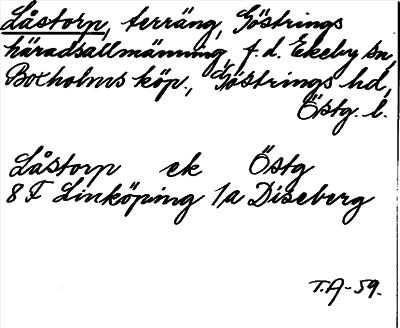 Låstorp, terräng, Göstrings
häradsallmänning, f.d. Ekeby sn,
Boxholms köp., Göstrings hd,
Östg. l.
Låstorp ek Östg
8 F Linköping 1a Diseberg
T.A-59.